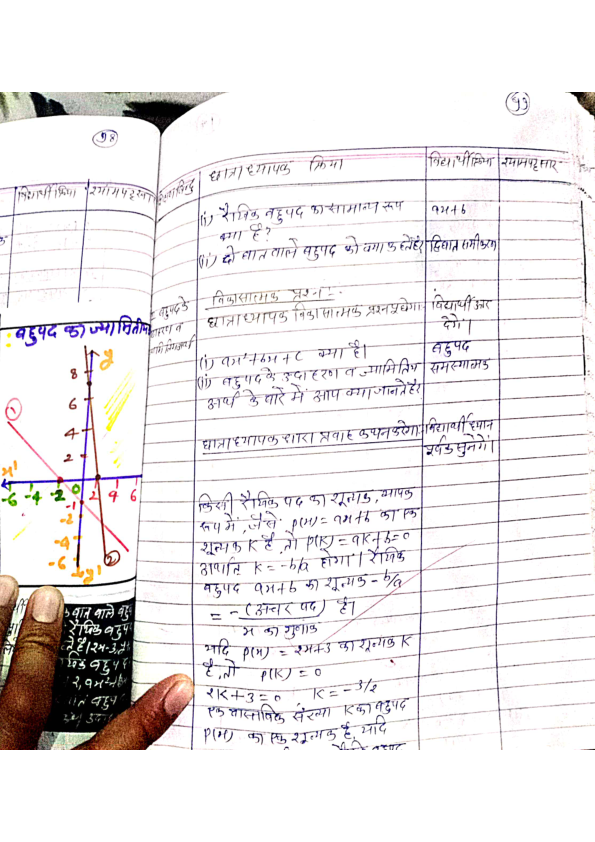 98
विद्यार्थी क्रिया
श्यामपट्ट
: बहुपद का ज्यामितीय
y
8
6
4
2
1
x'
-6 -4 -2 0 2 4 6
-1
-2
-4
-6
y'
2
घात वाले बहु
रैखिक बहुप
बहुप
99
छात्राध्यापक क्रिया
विद्यार्थी क्रिया
श्यामपट्ट सार
(i) रैखिक बहुपद का सामान्य रूप
क्या है?
ax+b
(ii) दो घात वाले बहुपद को क्या कहते हैं?
द्विघात समीकरण
बहुपद के
विकासात्मक प्रश्न:-
छात्राध्यापक विकासात्मक प्रश्न पूछेगा-
विद्यार्थी उत्तर
देंगे।
(i) ax²+bx+c क्या है।
बहुपद
(ii) बहुपद के उदाहरण व ज्यामितिय
समस्यात्मक
अर्थ के बारें में आप क्या जानते है?
छात्राध्यापक धारा प्रवाह कथन करेगा-
विद्यार्थी ध्यान
पूर्वक सुनेगें।
किसी रैखिक पद का शून्यक, व्यापक
रूप में, जैसे P(x) = ax+b का एक
शून्यक K है, तो P(K) = aK+b=0
अर्थात K = -b/a होगा। रैखिक
बहुपद ax+b का शून्यक -b/a
= -(अचर पद) है।
x का गुणांक
यदि P(x) = 2x+3 का शून्यक K
है, तो P(K) = 0
2K+3=0 K = -3/2
एक वास्तविक संख्या K का बहुपद
P(x) का एक शून्यक है, यदि